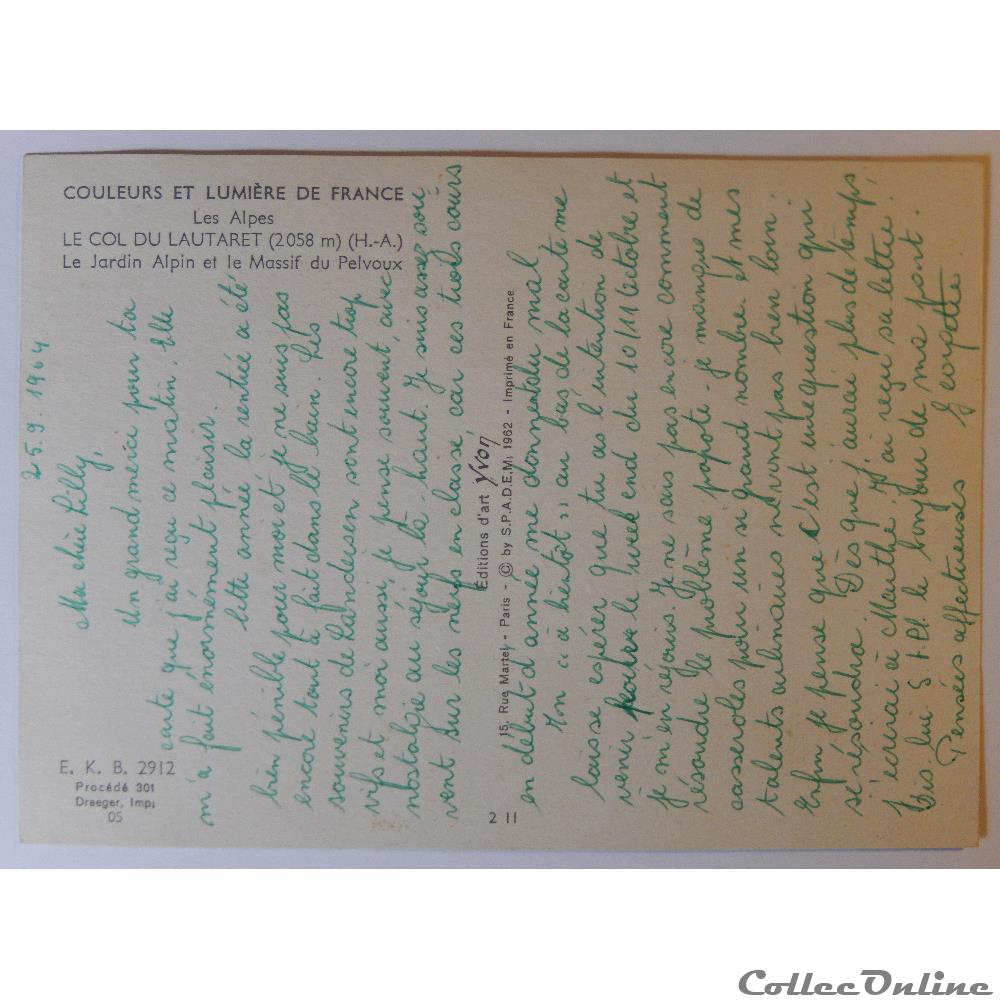 COULEURS ET LUMIÈRE DE FRANCE
Les Alpes
LE COL DU LAUTARET (2058 m) (H.-A.)
Le Jardin Alpin et le Massif du Pelvoux
E. K. B. 2912
Procédé 301
Draeger, Imp.
05
Editions d'art Yvon
15, Rue Martel - Paris - © by S.P.A.D.E.M. 1962 - Imprimé en France
2 11
25.9.1964
Ma chère Lilly,
Un grand merci pour ta
carte que j'ai reçu ce matin. Elle
m'a fait énormément plaisir.
Cette année la rentrée a été
bien pénible pour moi et je ne suis pas
encore tout à fait dans le bain. Les
souvenirs de Landeisen sont encore trop
vifs et moi aussi, je pense souvent, avec
nostalgie au séjour là-haut. Je suis assez sou
vent sur les nerfs en classe, car ces trois cours
en début d'année me donnent du mal
Ton "à bientôt" au bas de la carte me
laisse espérer que tu as l'intention de
venir le week end du 10/11 Octobre et
je m'en réjouis. Je ne sais pas encore comment
résoudre le problème popote - je manque de
casseroles pour un si grand nombre. Et mes
talents culinaires ne vont pas bien loin.
Enfin je pense que c'est une question qui
se résoudra. Dès que j'aurai plus de temps
j'écrirai à Marthe, j'ai reçu sa lettre.
Dis-lui S.t.pl. le bonjour de ma part.
Pensées affectueuses
CollecOnline